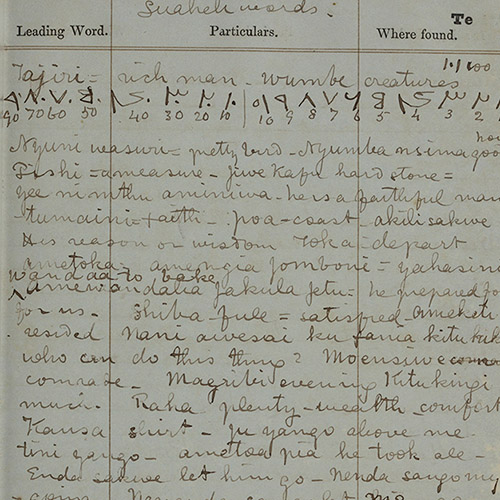 Suaheli words:
Te
Leading Word. Particulars. Where found.
Tajiri = rich man - wumbe creatures
90 70 60 50 40 30 20 10 10 9 8 7 6 5 4 3 2
Nyuni wasuri = pretty bird - Nyumba nsima good
Pishi = a measure - jiwe kafu hard stone =
yee ni mthu aminiwa - he is a faithful man
tumaini = faith - poa - coast - akili sakwe
His reason or wisdom toka - depart
ametoka - amengia jomboni = yahasim
wandaa to bake
amewandalia jakula jetu = he prepared fo
for us - shiba - full = satisfied ameketi
resided nani awesai ku fania kitu hiki
who can do this thing? Moensiwe
comrade - Magribi evening Kitu kingi
much - Raha plenty - wealth comfort
Kansa shirt - ju yango above me -
tini yango - ametoa pia he took all -
Enda sakwe let him go - Nenda sango my